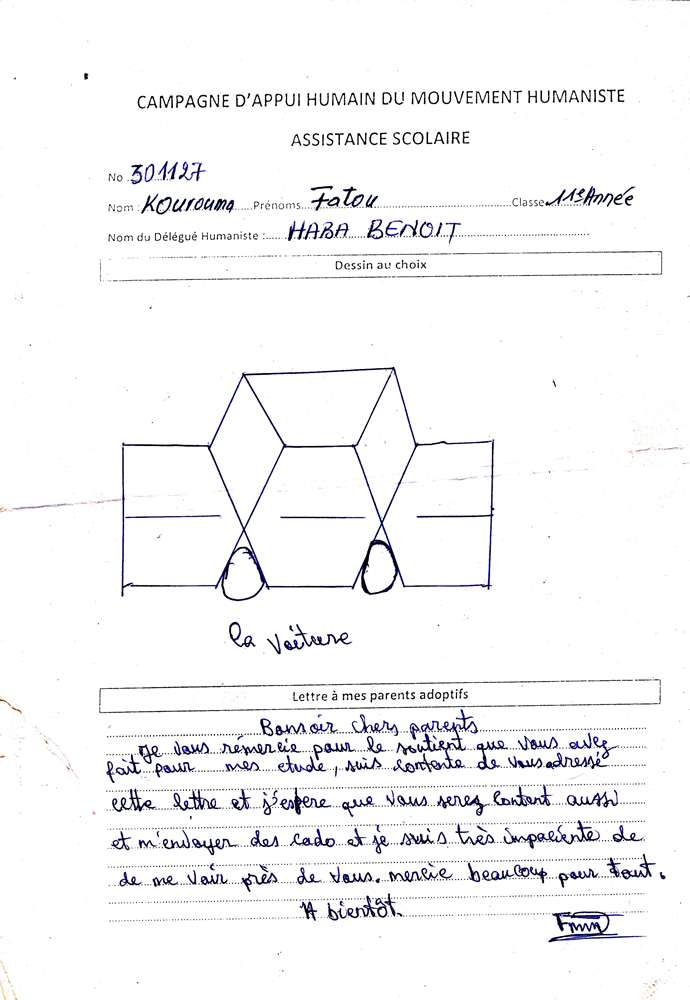 CAMPAGNE D'APPUI HUMAIN DU MOUVEMENT HUMANISTE
ASSISTANCE SCOLAIRE
No 301127
Nom : KOUROUMA Prénoms Fatou Classe 11e Année
Nom du Délégué Humaniste : HABA BENOIT
Dessin au choix
la voiture
Lettre à mes parents adoptifs
Bonsoir chers parents
Je vous rémercie pour le soutient que vous avez
fait pour mes etude, suis contente de vous adressé
cette lettre et j'espere que vous serez content aussi
et m'envoyer des cado et je suis très impaciente de
de me voir près de vous. mercie beaucoup pour tout.
A bientôt.